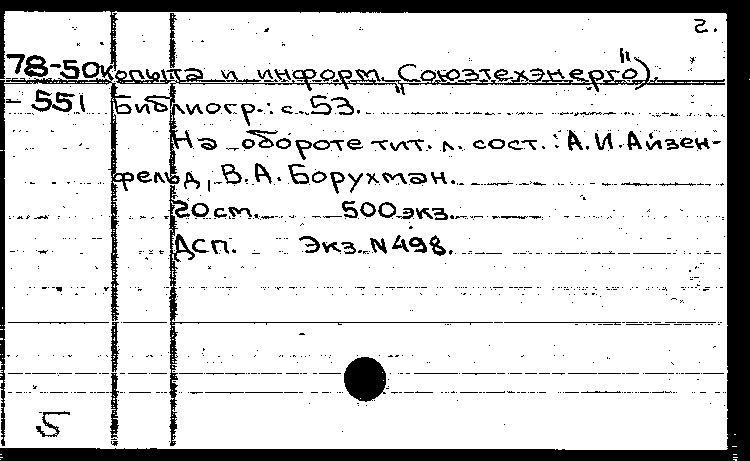 2.
78-50 копыта и информ. "Союзтехэнерго").
- 551 Библиогр.: с. 53.
На обороте тит. л. сост.: А.И.Айзен-
фельд, В.А. Борухман.
20 см. 500 экз.
Дсп. Экз. N 498.
5